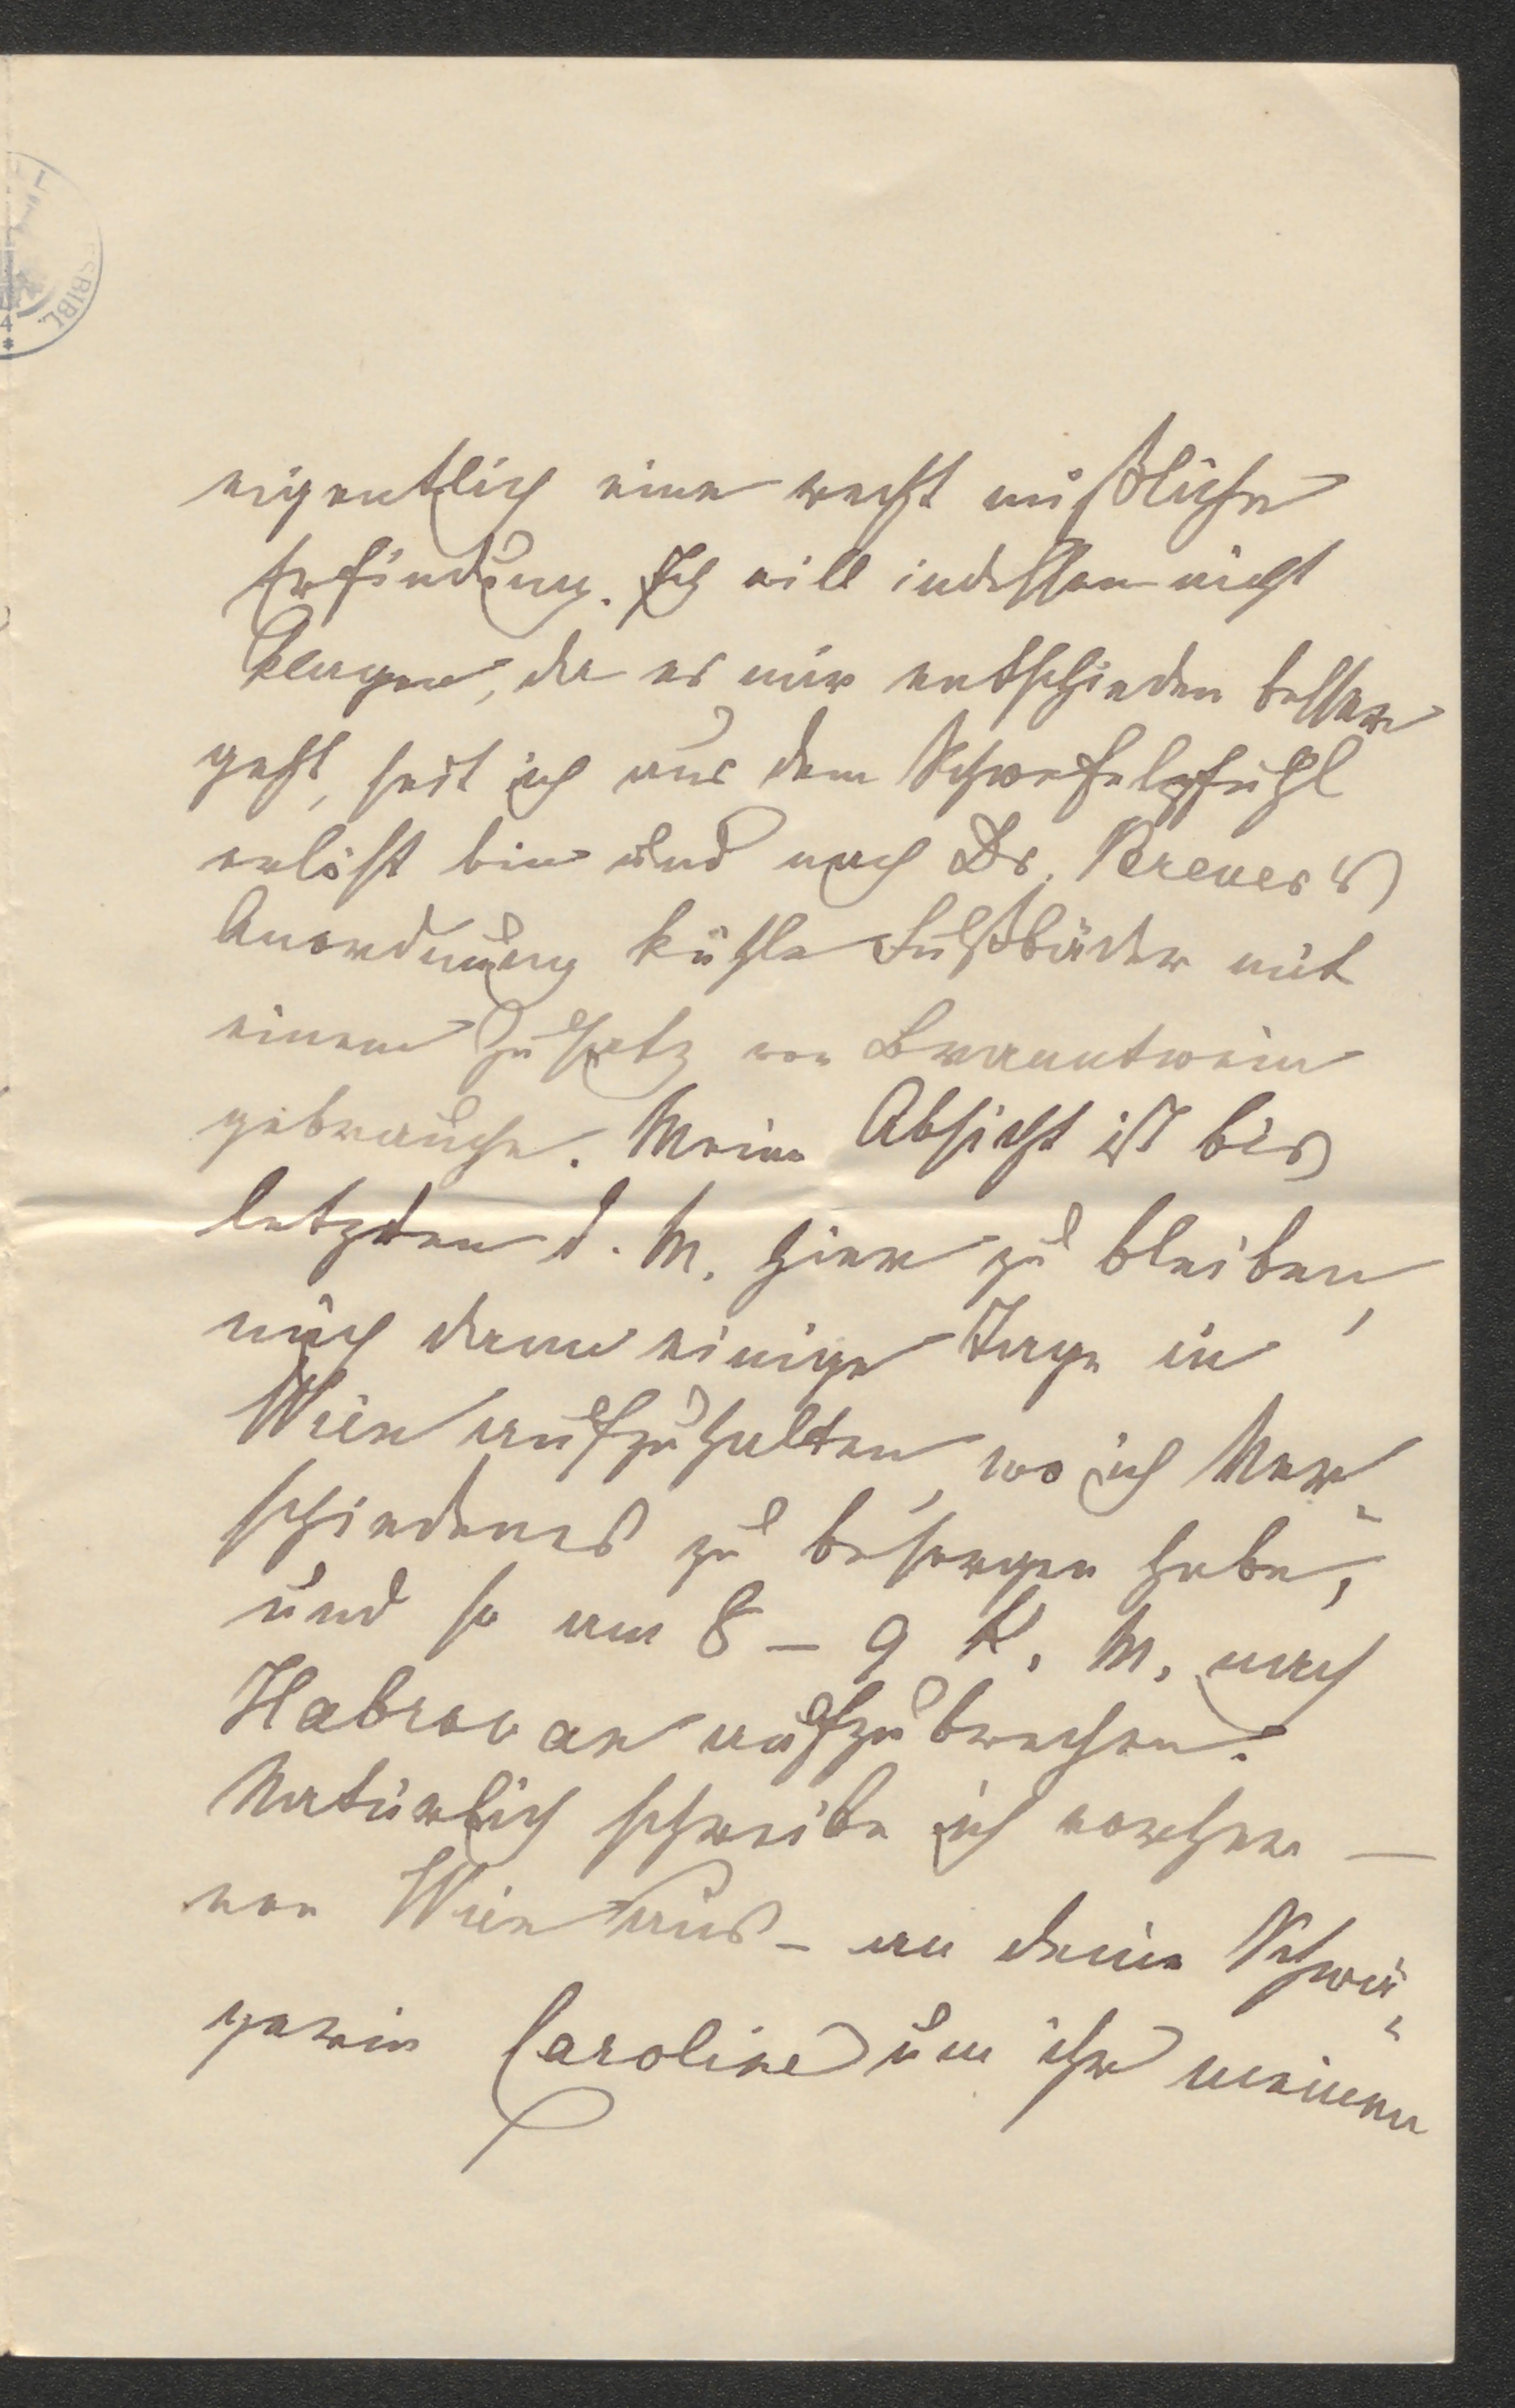 eigentlich eine recht mißliche
Erfindung. Ich will indessen nicht
klagen, da es mir entschieden besser
geht, seit ich aus dem Schwefelpfuhl
erlöst bin und nach Dr. Breuers
Anordnung kühle Fußbäder mit
einem Zusatz von Branntwein
gebrauche. Meine Absicht ist bis
letzten d. M. hier zu bleiben,
mich dann einige Tage in
Wien aufzuhalten, wo ich Ver-
schiedenes zu besorgen habe,
und so am 8 – 9 k. M. nach
Habrovan aufzubrechen.
Natürlich schreibe ich vorher –
von Wien aus – an deine Schwä-
gerin Caroline um ihr meinen
SBIBL.
4
*